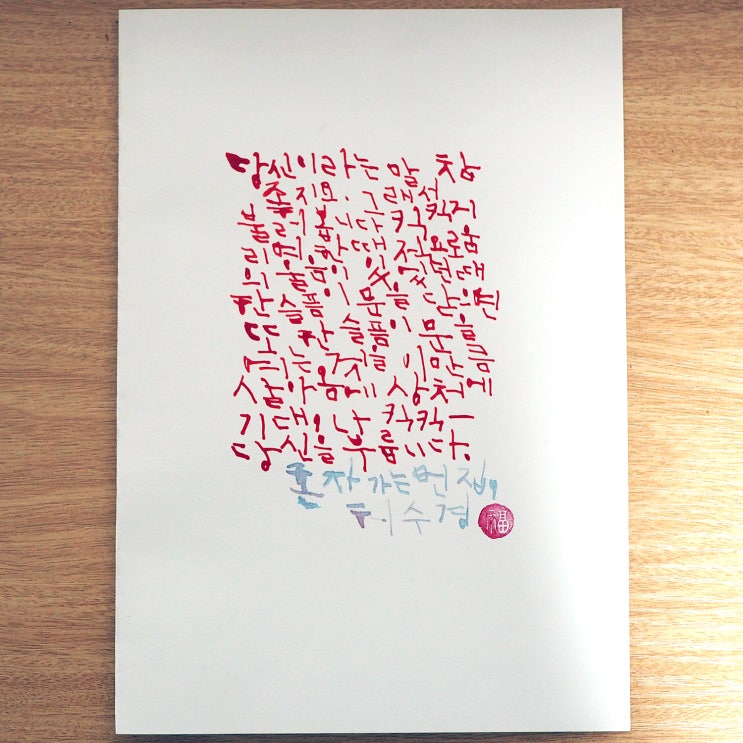 당신이라는 말 참
좋지요. 그래서
불러 봅니다 킥킥거
리며 한때 적요로움
의 울음이 있었던 때
한 슬픔이 문을 닫으면
또 한 슬픔이 문을
여는 것을 이만큼
살아옴에 상처에
기대, 나 킥킥-
당신을 부릅니다.
혼자 가는 먼 집,
허수경
福